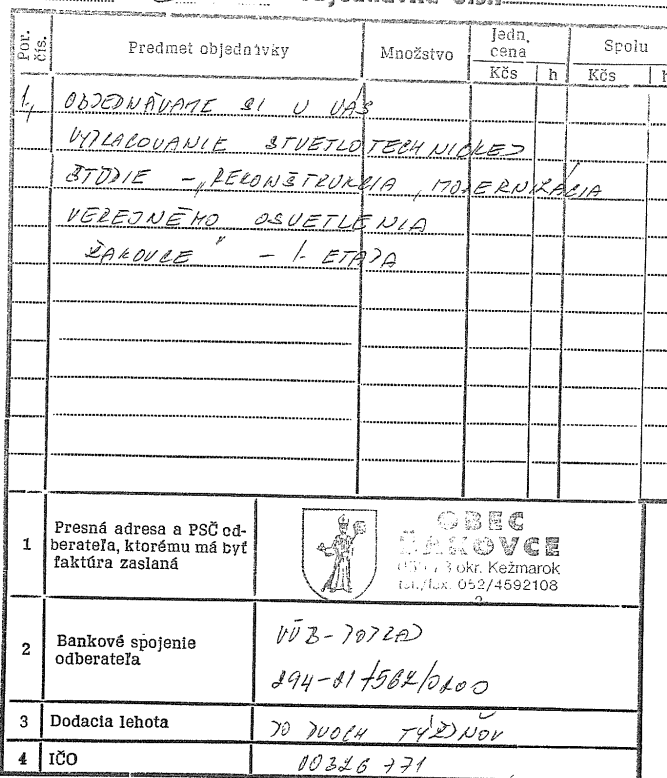 Por. čís. Predmet objednávky Množstvo Jedn. cena Spolu
Kčs h Kčs h
1, OBJEDNÁVAME SI U VÁS
VYPRACOVANIE SVETLOTECHNICKEJ
ŠTÚDIE - „REKONŠTRUKCIA, MODERNIZÁCIA
VEREJNÉHO OSVETLENIA
ŽAKOVCE" - 1. ETAPA
1 Presná adresa a PSČ od-
berateľa, ktorému má byť
faktúra zaslaná
OBEC
ŽAKOVCE
okr. Kežmarok
tel./fax. 052/4592108
2 Bankové spojenie
odberateľa
VÚB - POPRAD
3 Dodacia lehota DO DVOCH TÝŽDŇOV
4 IČO 00326 771